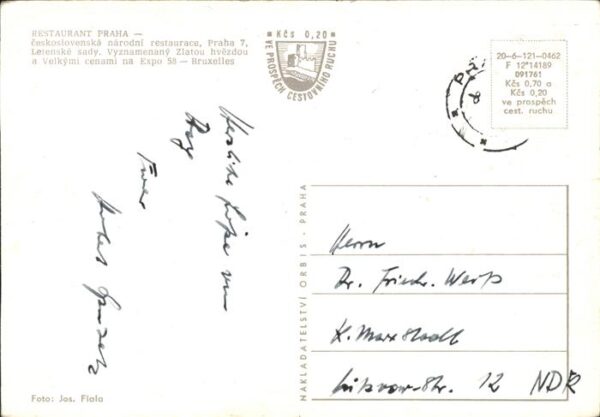 RESTAURANT PRAHA —
československá národní restaurace, Praha 7,
Letenské sady, Vyznamenaný Zlatou hvězdou
a Velkými cenami na Expo 58 — Bruxelles
Kčs 0,20
VE PROSPĚCH CESTOVNÍHO RUCHU
20-6-121-0462
F 12*14189
091761
Kčs 0,70 a
Kčs 0,20
ve prospěch
cest. ruchu
Herzliche Grüße von
Herrn
Dr. Friedr. Weiß
K. Marx Stadt
-Str. 12 NDR
NAKLADATELSTVÍ ORBIS - PRAHA
Foto: Jos. Fiala